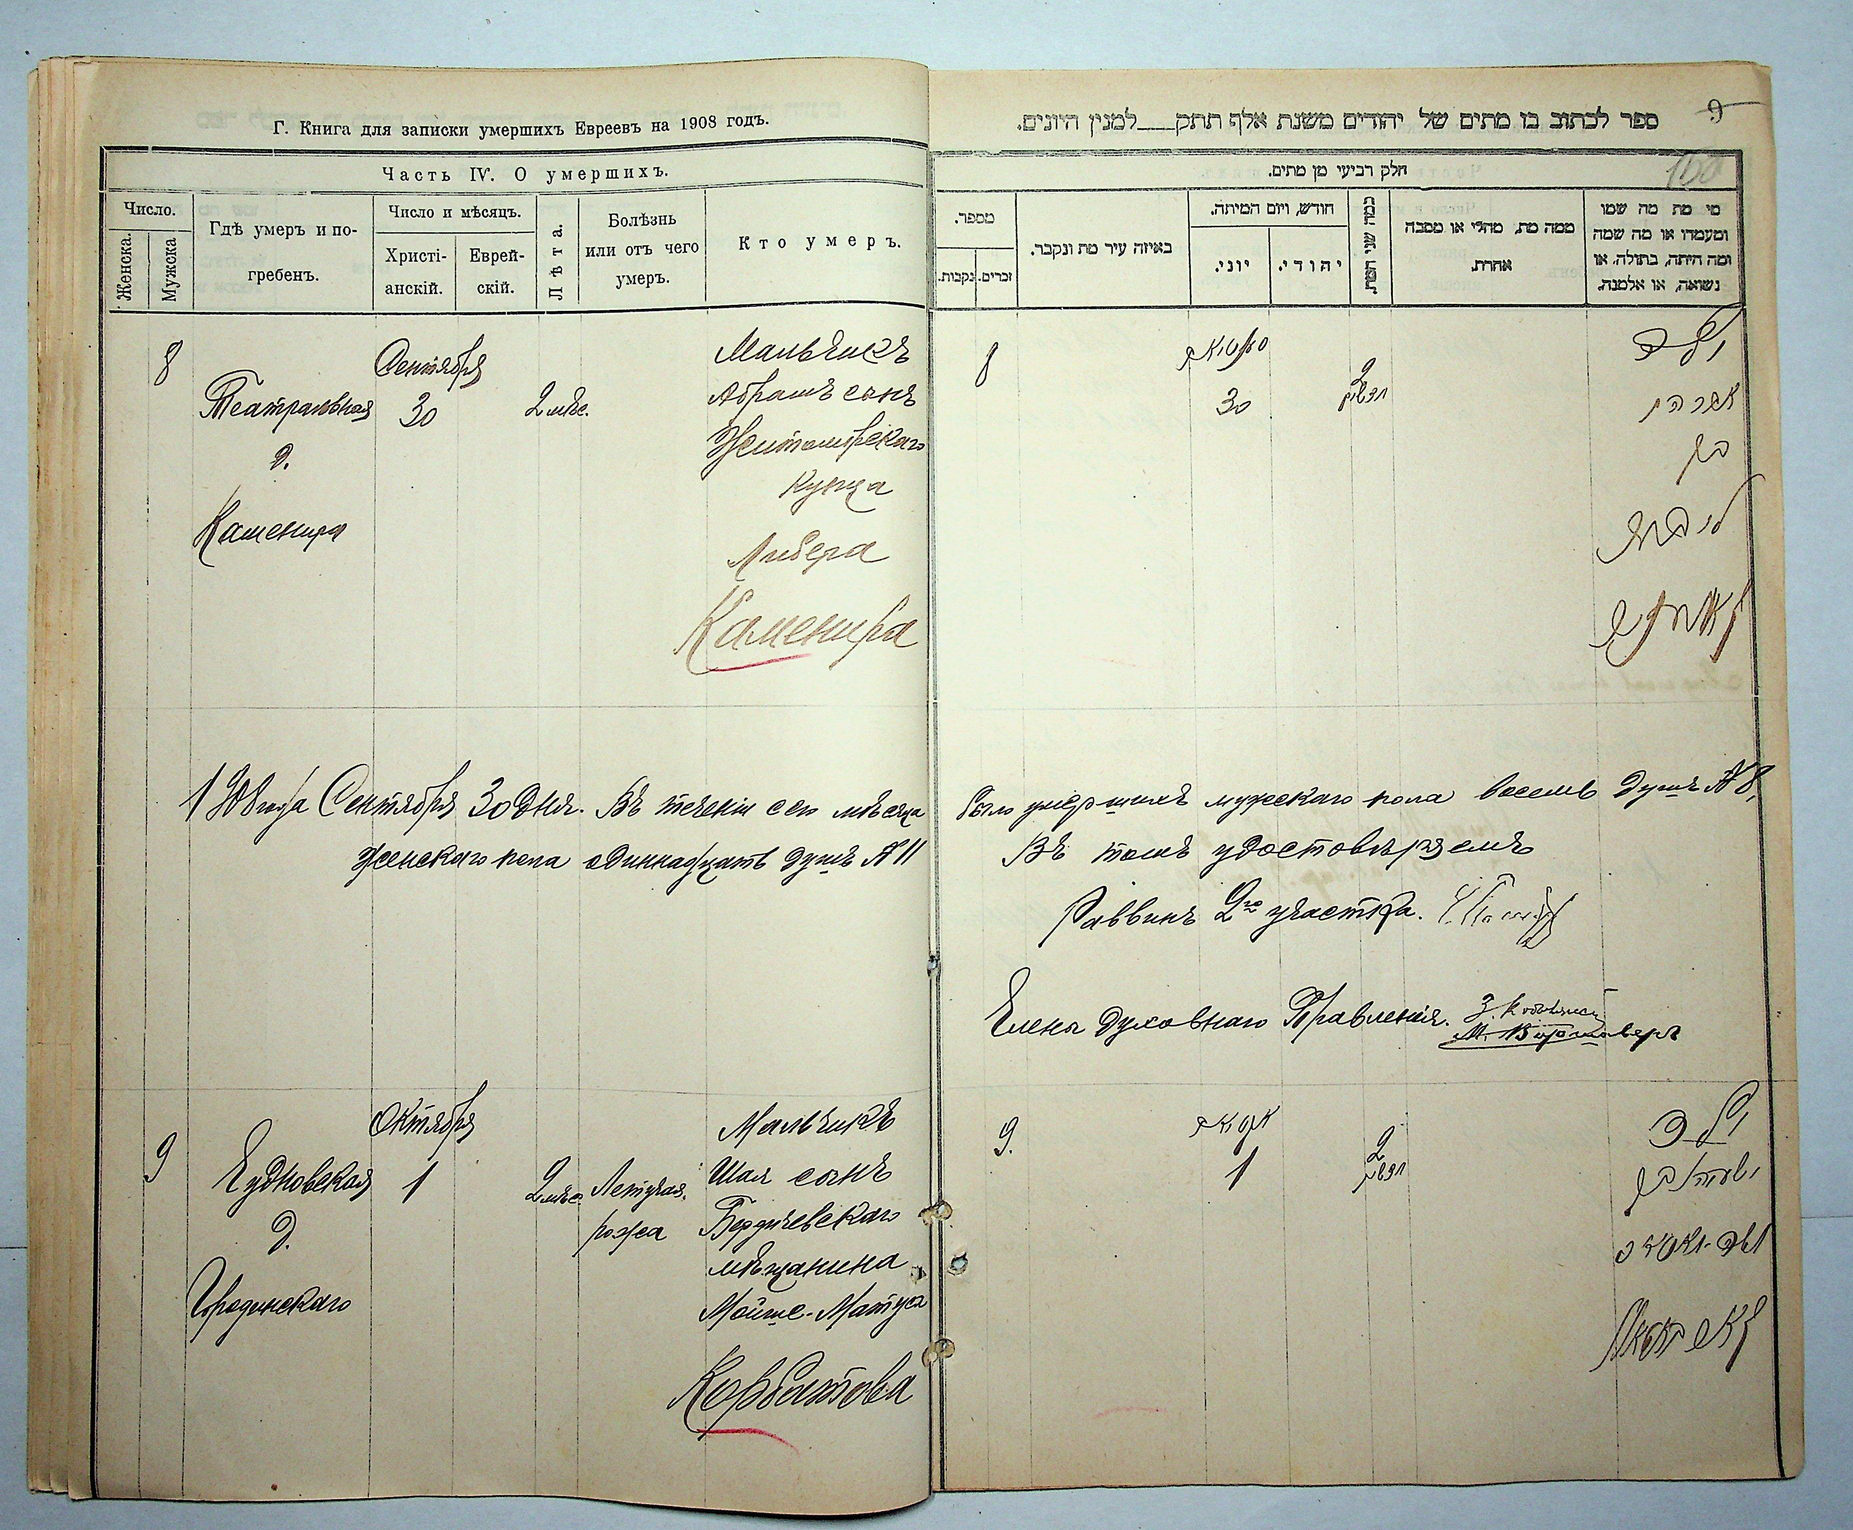 Г. Книга для записки умершихъ Евреевъ на 1908 годъ.
Часть IV. О умершихъ.
Число.
Женска.
Мужска
Гдѣ умеръ и по-
гребенъ.
Число и мѣсяцъ.
Христі-
анскій.
Еврей-
скій.
Лѣта.
Болѣзнь
или отъ чего
умеръ.
Кто умеръ.
8
Сентября
30
Театральная
д.
Каменира
2 мѣс.
Мальчикъ
Абрамъ сынъ
Житомірскаго
купца
Либера
Каменира
1908 года Сентября 30 дня. Въ теченіи сего мѣсяца
было умершихъ мужскаго пола восемь душъ № 8,
женскаго пола одиннадцать душъ № 11
Въ томъ удостовѣряемъ
Раввинъ 2го участка.
Члены духовнаго Правленія.
9
Октября
1
Чудновская
д.
Городинскаго
2 мѣс.
Летучая
рожа
Мальчикъ
Шая сынъ
Бердичевскаго
мѣщанина
Мойше-Матуса
Корбатова
9
ספר לכתוב בו מתים של יהודים משנת אלף תתק___למנין היונים.
160
חלק רביעי מן מתים.
מספר.
נקבות.
זכרים.
באיזה עיר מת ונקבר.
חודש, ויום המיתה.
יוני.
יהודי.
כמה שני המת.
ממה מת, מחלי או מסבה
אחרת.
מי מת מה שמו
ומעמדו או מה שמה
ומה היתה, בתולה, או
נשואה, או אלמנה.
8
30
2
חדשים
ילד
אברהם
בן
ליבער
9.
1
2
חדשים
ילד
ישעיה בן